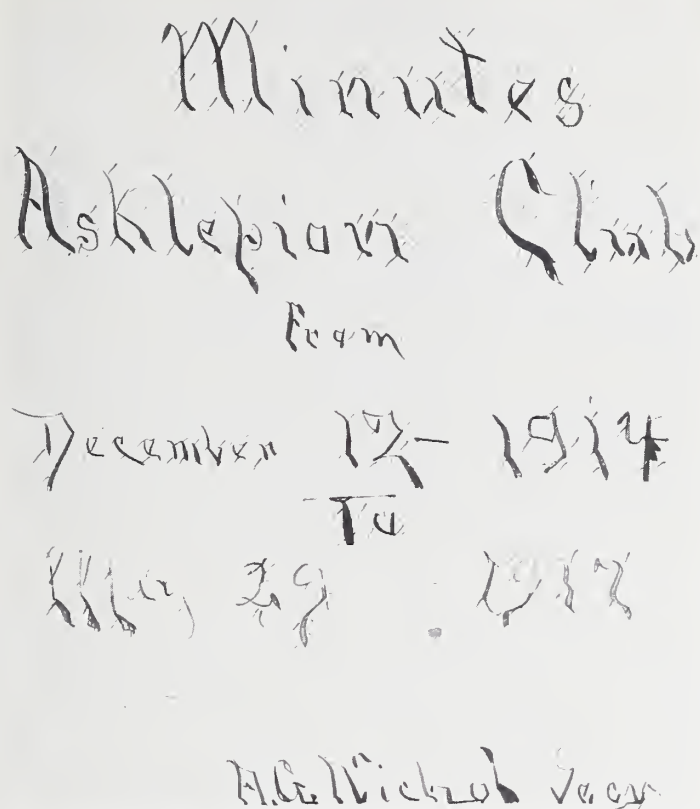 Minutes
Asklepion Club
From
December 12- 1914
To
May 29 . 1917
A.G. Nichols Secy